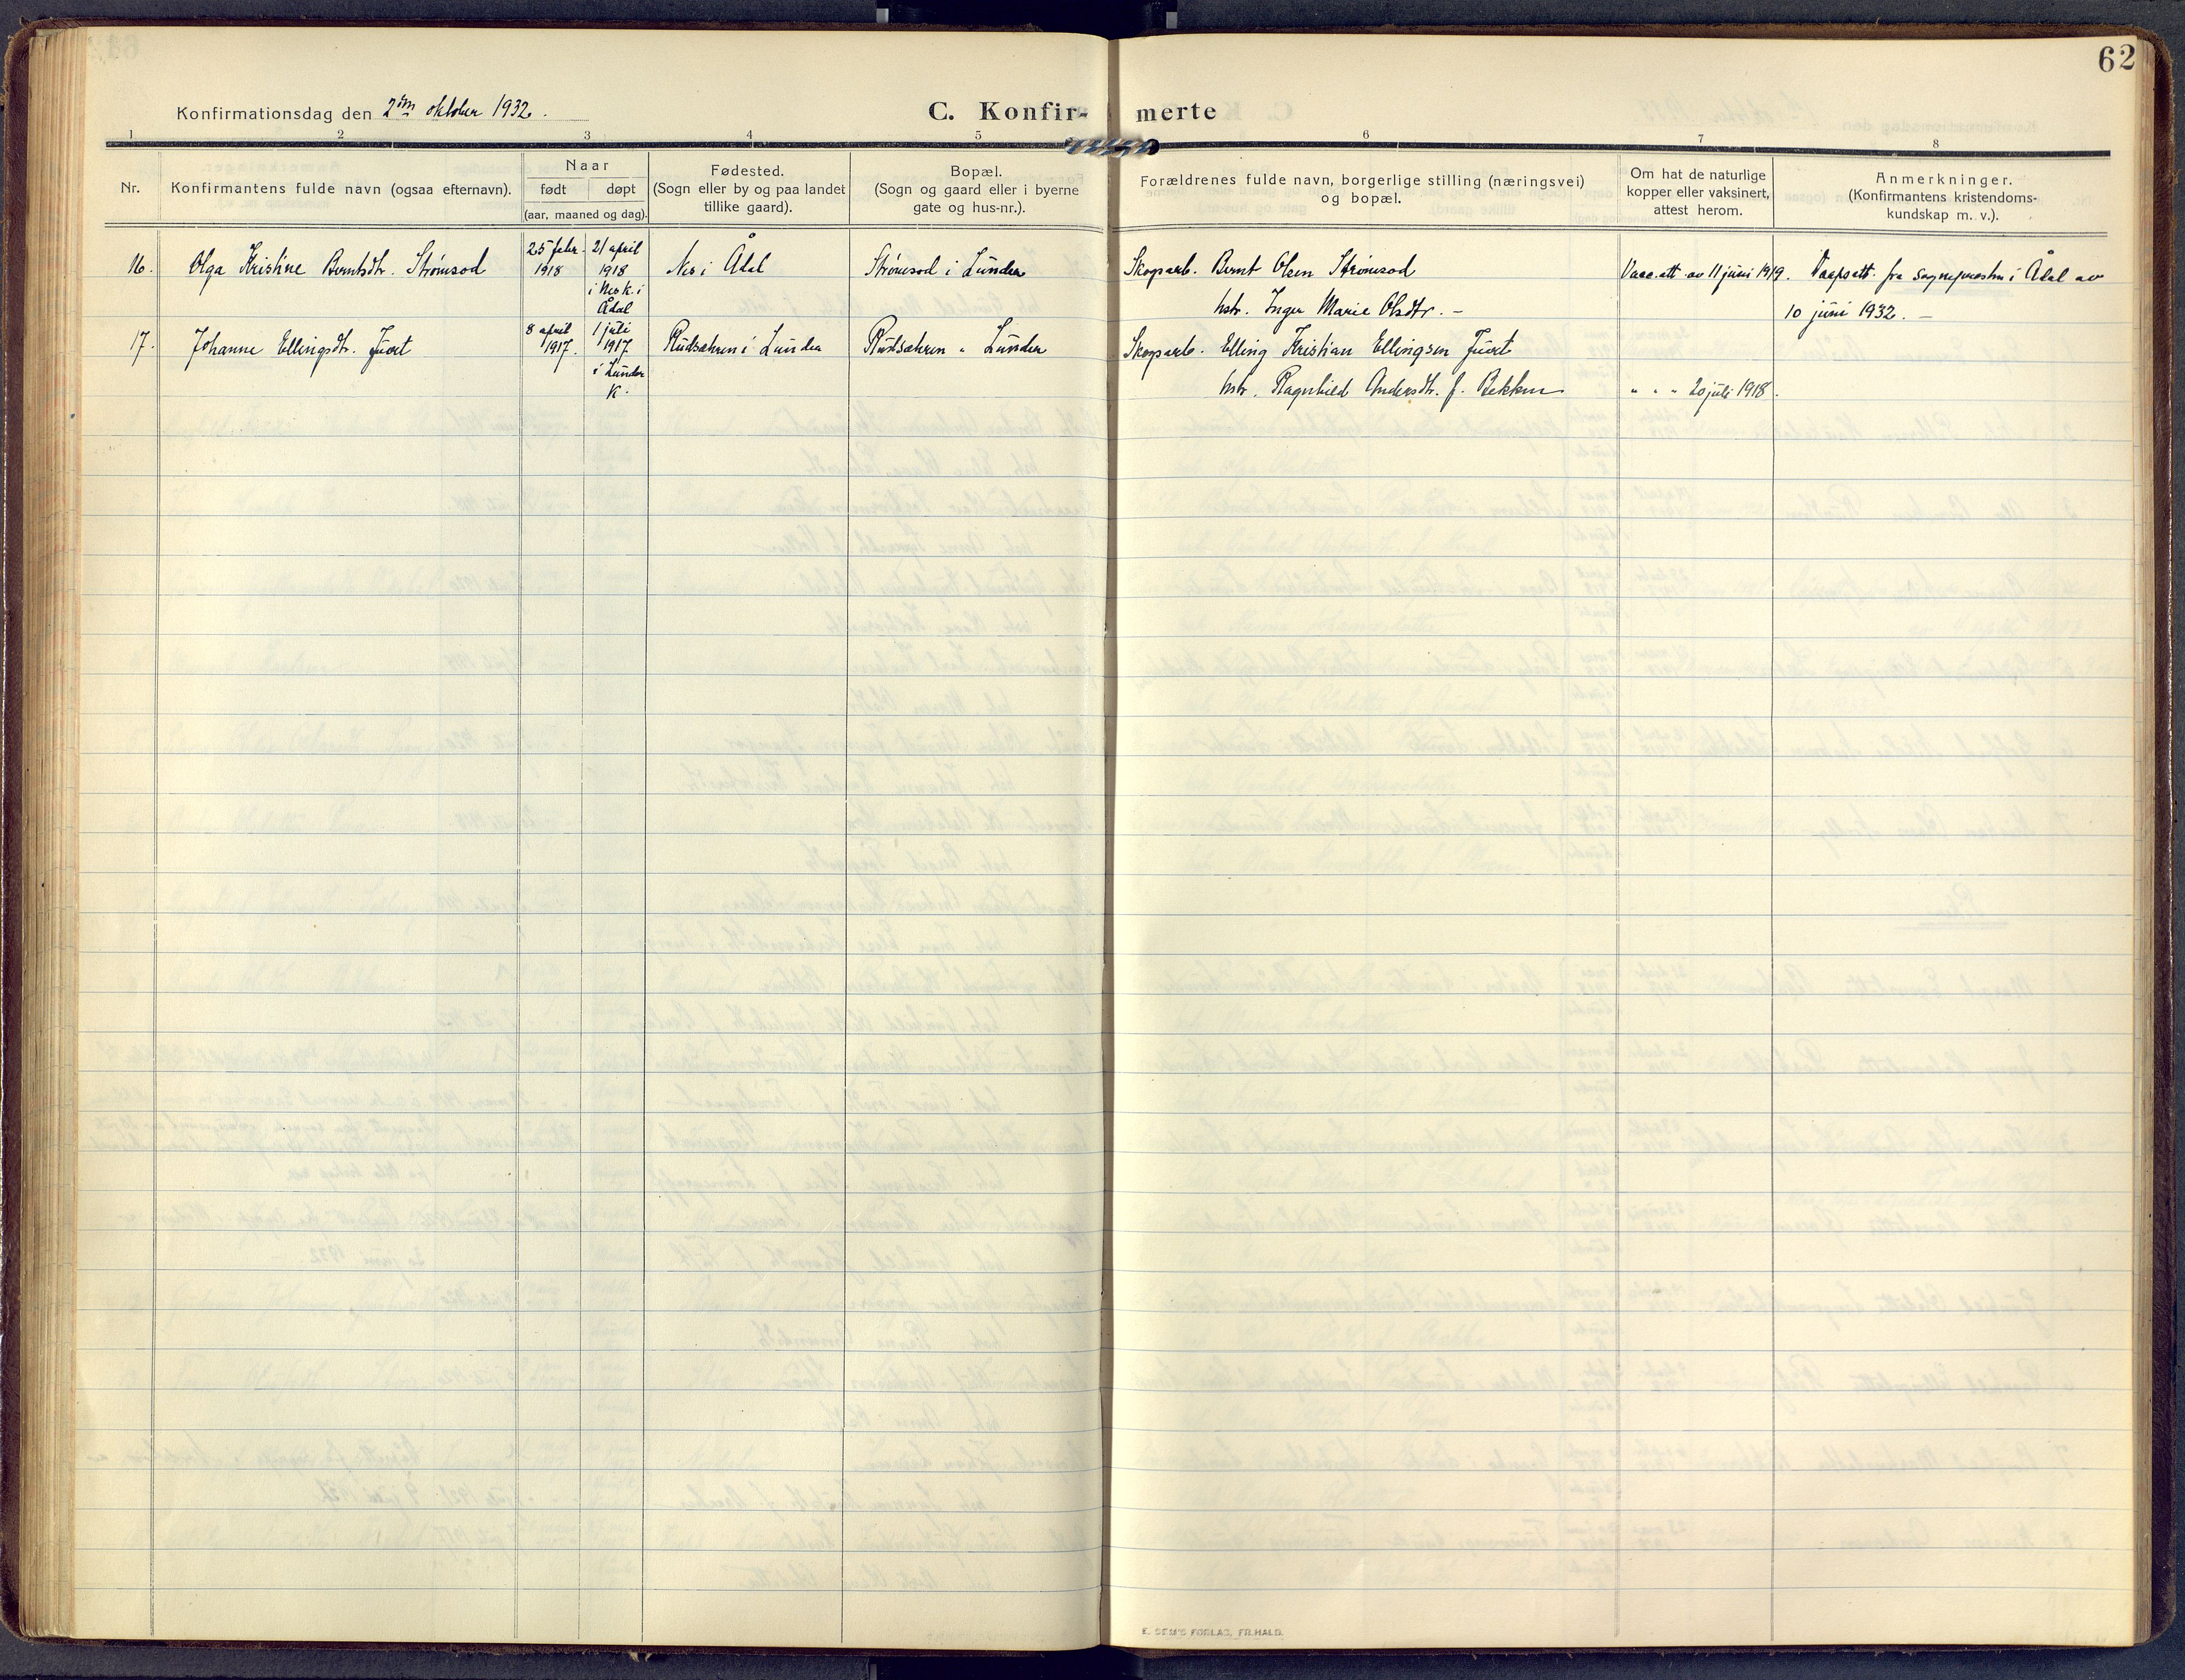 62
Konfirmationsdag den 2den oktober 1932.
C. Konfir- merte
1 2 3 4 5 6 7 8
Nr.
Konfirmantens fulde navn (ogsaa efternavn).
Naar
født døpt
(aar, maaned og dag).
Fødested.
(Sogn eller by og paa landet
tillike gaard).
Bopæl.
(Sogn og gaard eller i byerne
gate og hus-nr.).
Forældrenes fulde navn, borgerlige stilling (næringsvei)
og bopæl.
Om hat de naturlige
kopper eller vaksinert,
attest herom.
Anmerkninger.
(Konfirmantens kristendoms-
kundskap m. v.).
16. Olga Kristine Berntsdtr. Strømsod
25 febr.
1918
21 april
1918
i Nes k. i
Ådal
Nes i Ådal
Strømsod i Lunder
Skogsarb. Bernt Olsen Strømsod
hstr. Inger Marie Olsdtr. -
Vacc.att. av 11 juni 1919.
Daapsatt. fra sognepresten i Ådal av
10 juni 1932. -
17. Johanne Ellingsdtr. Juvet
8 april
1917.
1 juli
1917
i Lunder
K.
Rudsætren i Lunder
Rudsætren " Lunder
Skogsarb. Elling Kristian Ellingsen Juvet
hstr. Ragnhild Andersdtr. f. Bekken
" " " 20 juli 1918.
E. SEM'S FORLAG, FR.HALD.